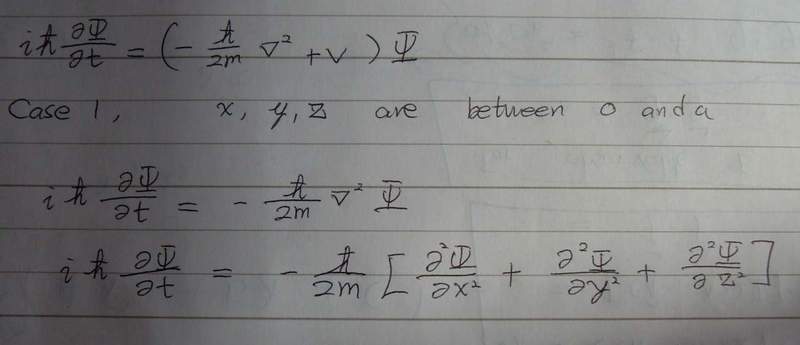 iħ ∂Ψ/∂t = (- ħ/2m ∇² + V) Ψ
Case 1, x, y, z are between 0 and a
iħ ∂Ψ/∂t = - ħ/2m ∇² Ψ
iħ ∂Ψ/∂t = - ħ/2m [∂²Ψ/∂x² + ∂²Ψ/∂y² + ∂²Ψ/∂z²]